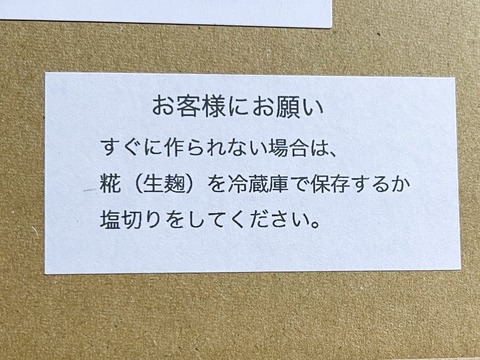 お客様にお願い
すぐに作られない場合は、
糀（生麹）を冷蔵庫で保存するか
塩切りをしてください。